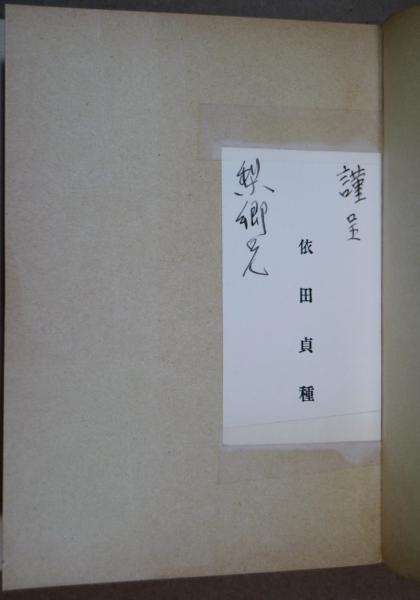 謹呈
依田貞種
梨郷兄